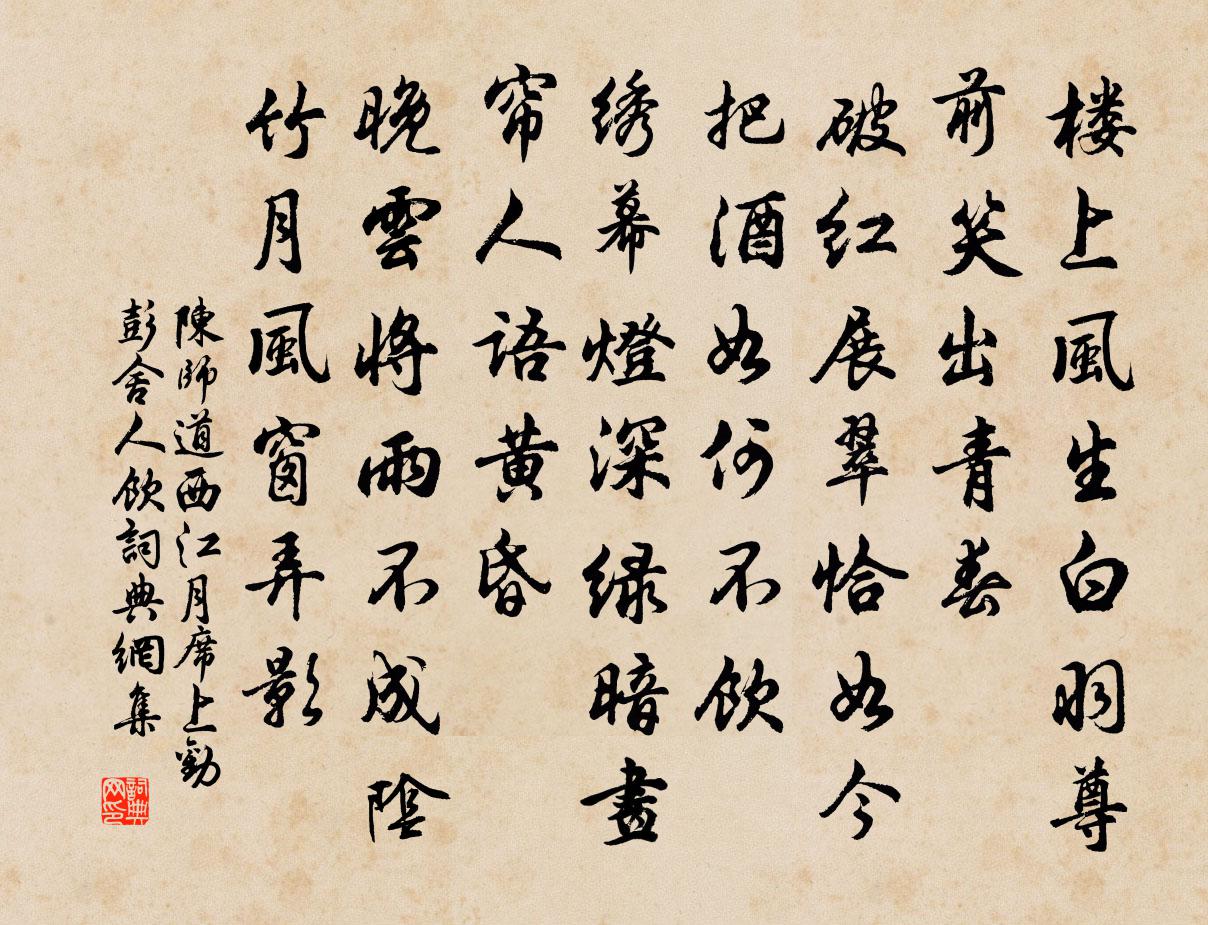 楼上風生白羽尊
前笑出青春
破红展翠恰如今
把酒如何不飲
绣幕燈深绿暗畫
帘人語黄昏
晚雲将雨不成陰
竹月風窗弄影
陳師道西江月席上勸
彭舍人飲詞典網集
詞典
网印